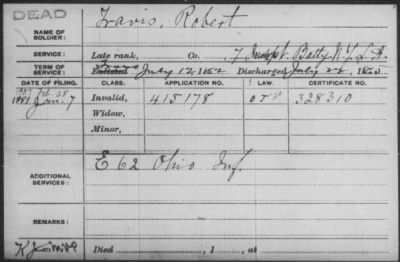 DEAD
NAME OF SOLDIER: Travis, Robert
SERVICE: Late rank, Co. 7 Indpt. Batty N.Y. L.A.
TERM OF SERVICE: Enlisted July 12 1862 Discharged July 22, 1865
DATE OF FILING. CLASS. APPLICATION NO. LAW. CERTIFICATE NO.
1881 Jan. 7 Invalid, 415,178 328310
Widow,
Minor,
ADDITIONAL SERVICES: E 62 Ohio Inf.
REMARKS:
Died , 1 , at